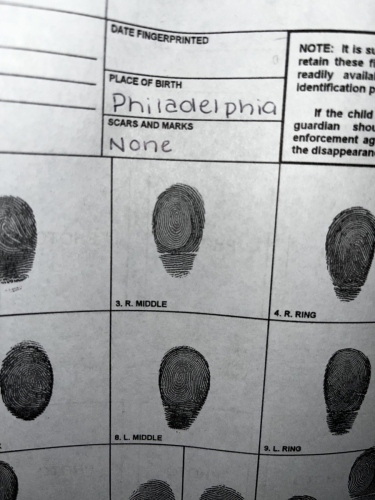 DATE FINGERPRINTED
PLACE OF BIRTH
Philadelphia
SCARS AND MARKS
None
NOTE: It is su
retain these fi
readily availa
identification p
If the child
guardian shou
enforcement ag
the disappearan
3. R. MIDDLE
4. R. RING
8. L. MIDDLE
9. L. RING